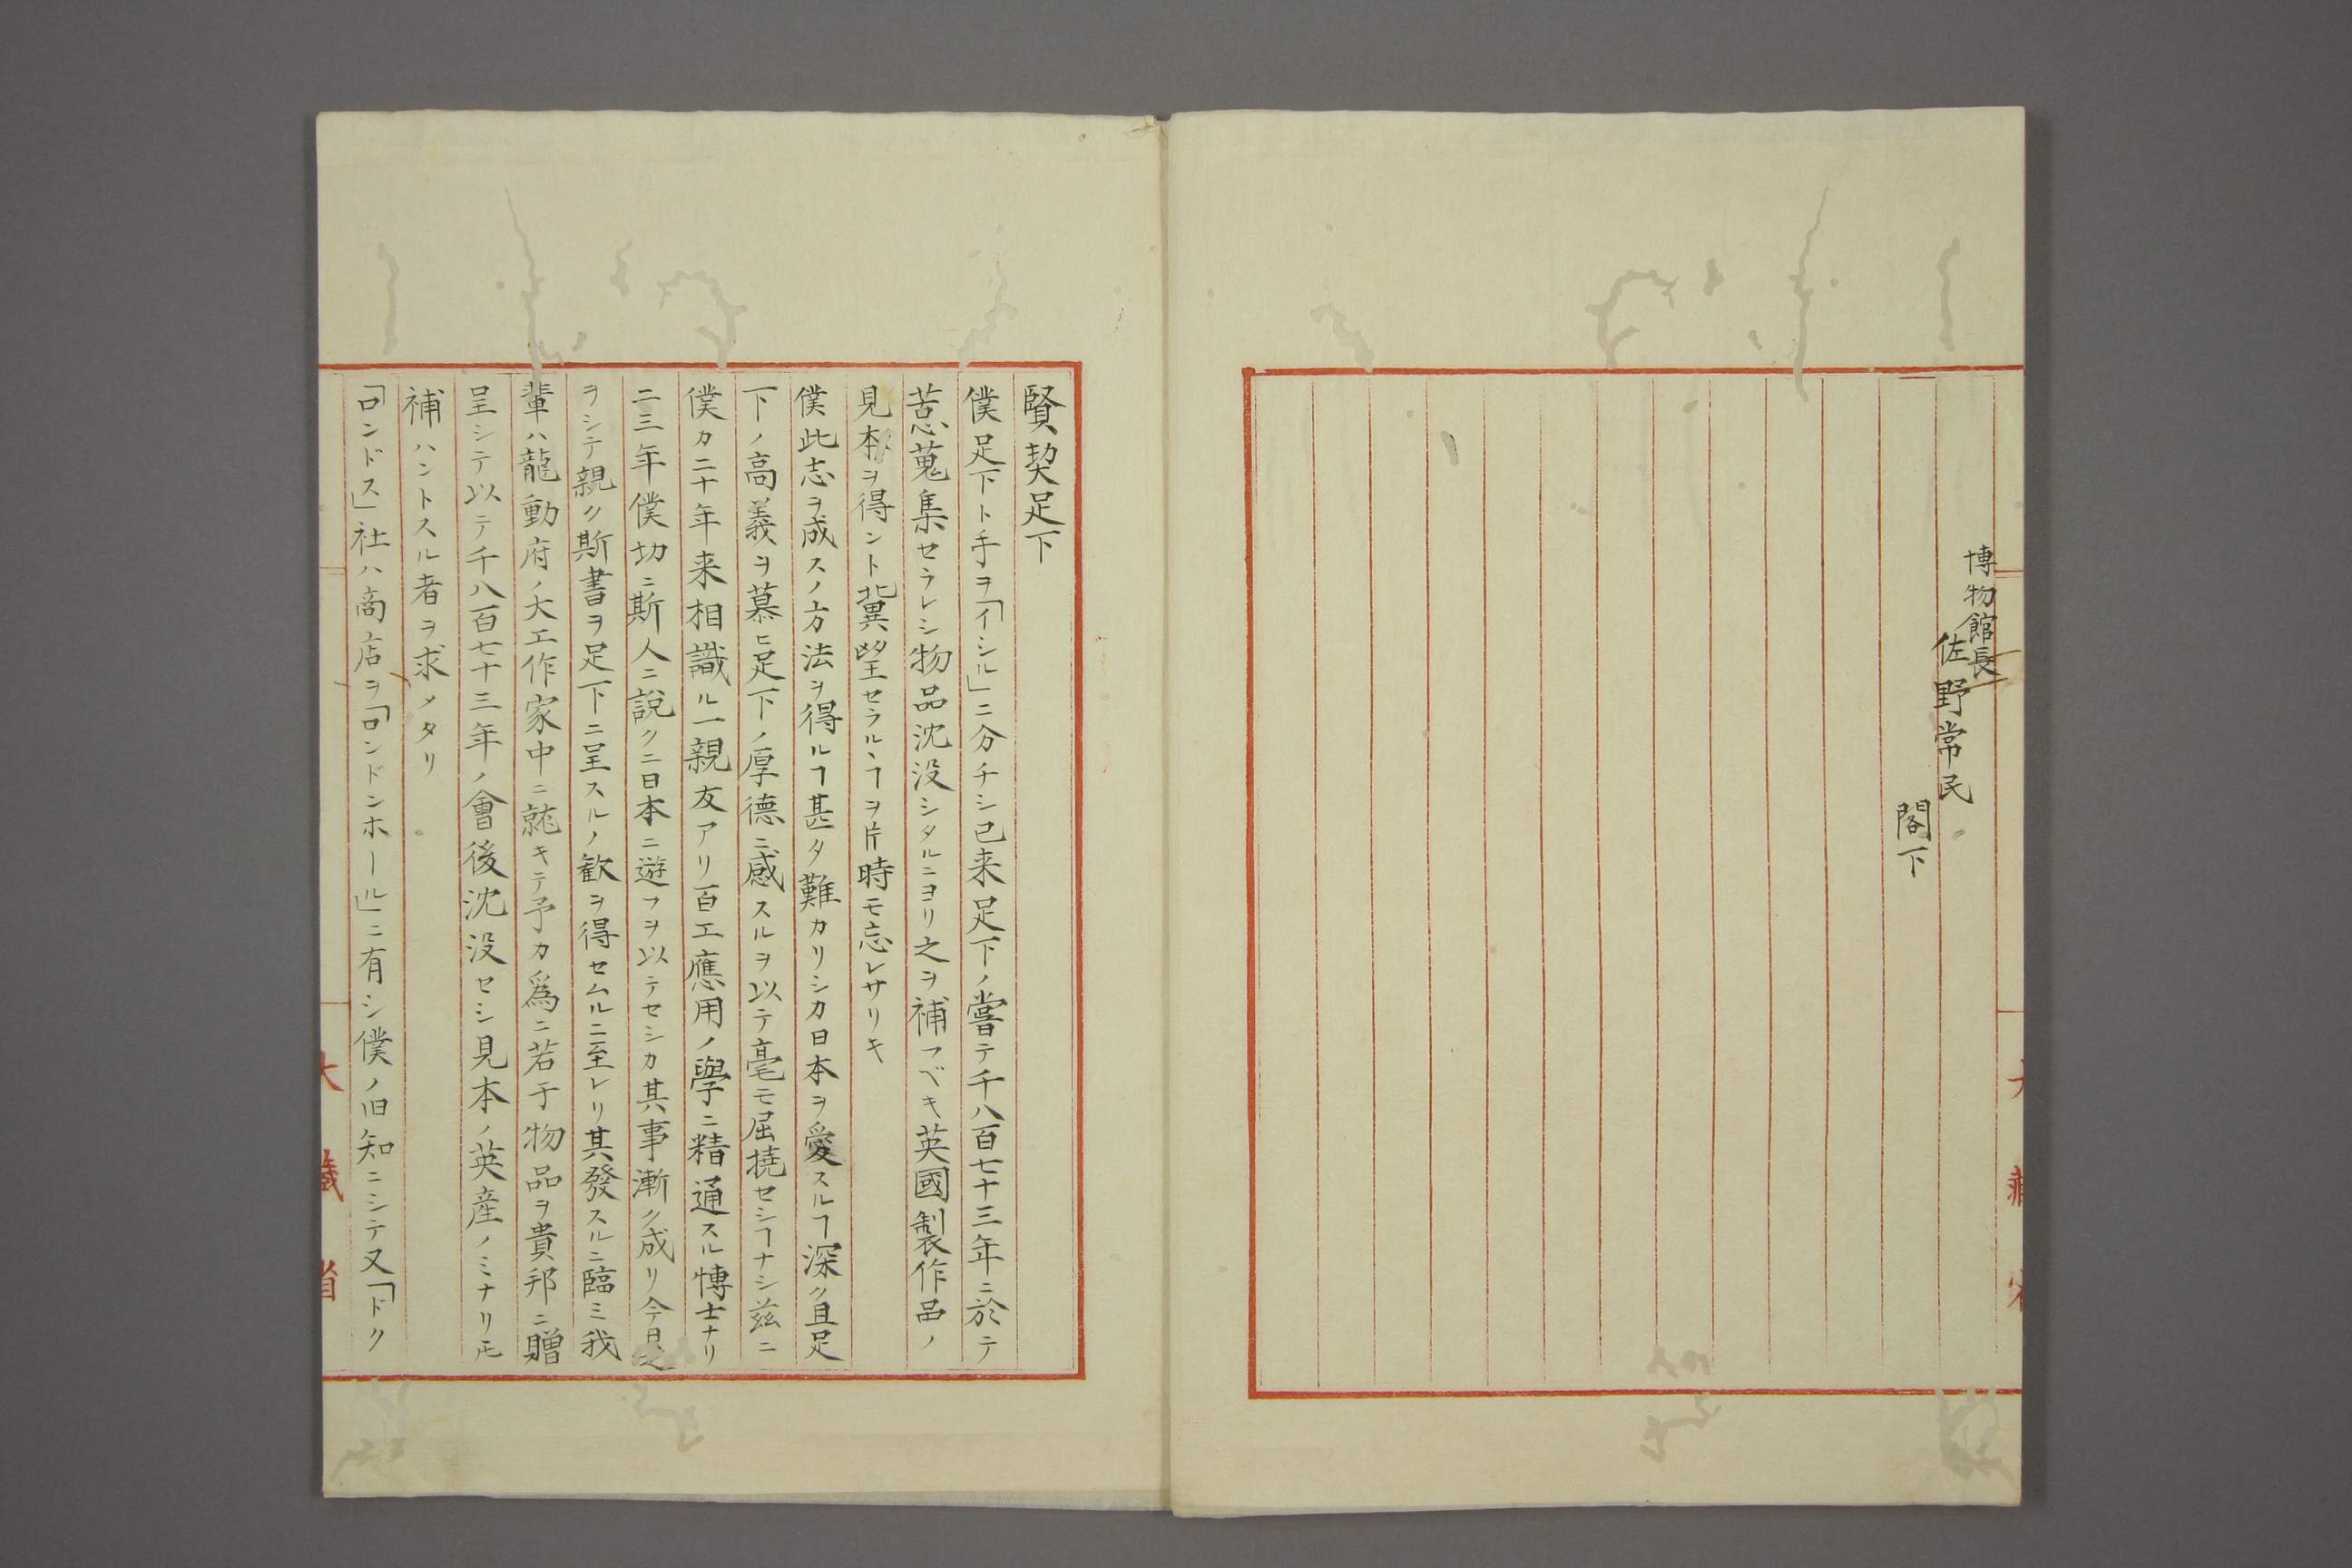 博物館長
佐野常民
閣下
賢契足下
僕足下ト手ヲ「イシル」ニ分チシ已来足下ノ嘗テ千八百七十三年ニ於テ
苦蒐集セラレシ物品沈没シタルニヨリ之ヲ補フベキ英國製作品ノ
見本ヲ得ント冀望セラルヽヿヲ片時モ忘レサリキ
僕此志ヲ成スノ方法ヲ得ルヿ甚タ難カリシカ日本ヲ愛スルヿ深ク且足
下ノ高義ヲ慕ヒ足下ノ厚德ニ感スルヲ以テ毫モ屈撓セシヿナシ茲ニ
僕カ二十年来相識ル一親友アリ百工應用ノ學ニ精通スル博士ナリ
二三年僕切ニ斯人ニ說クニ日本ニ遊フヲ以テセシカ其事漸ク成リ今日之
ヲシテ親ク斯書ヲ足下ニ呈スルノ歓ヲ得セムルニ至レリ其發スルニ臨ミ我
輩ハ龍動府ノ大工作家中ニ就キテ予カ為ニ若干物品ヲ貴邦ニ贈
呈シテ以テ千八百七十三年ノ會後沈没セシ見本ノ英産ノミナリ𪜈
補ハントスル者ヲ求メタリ
「ロンドス」社ハ商店ヲ「ロンドンホール」ニ有シ僕ノ旧知ニシテ又「ドク
大藏省